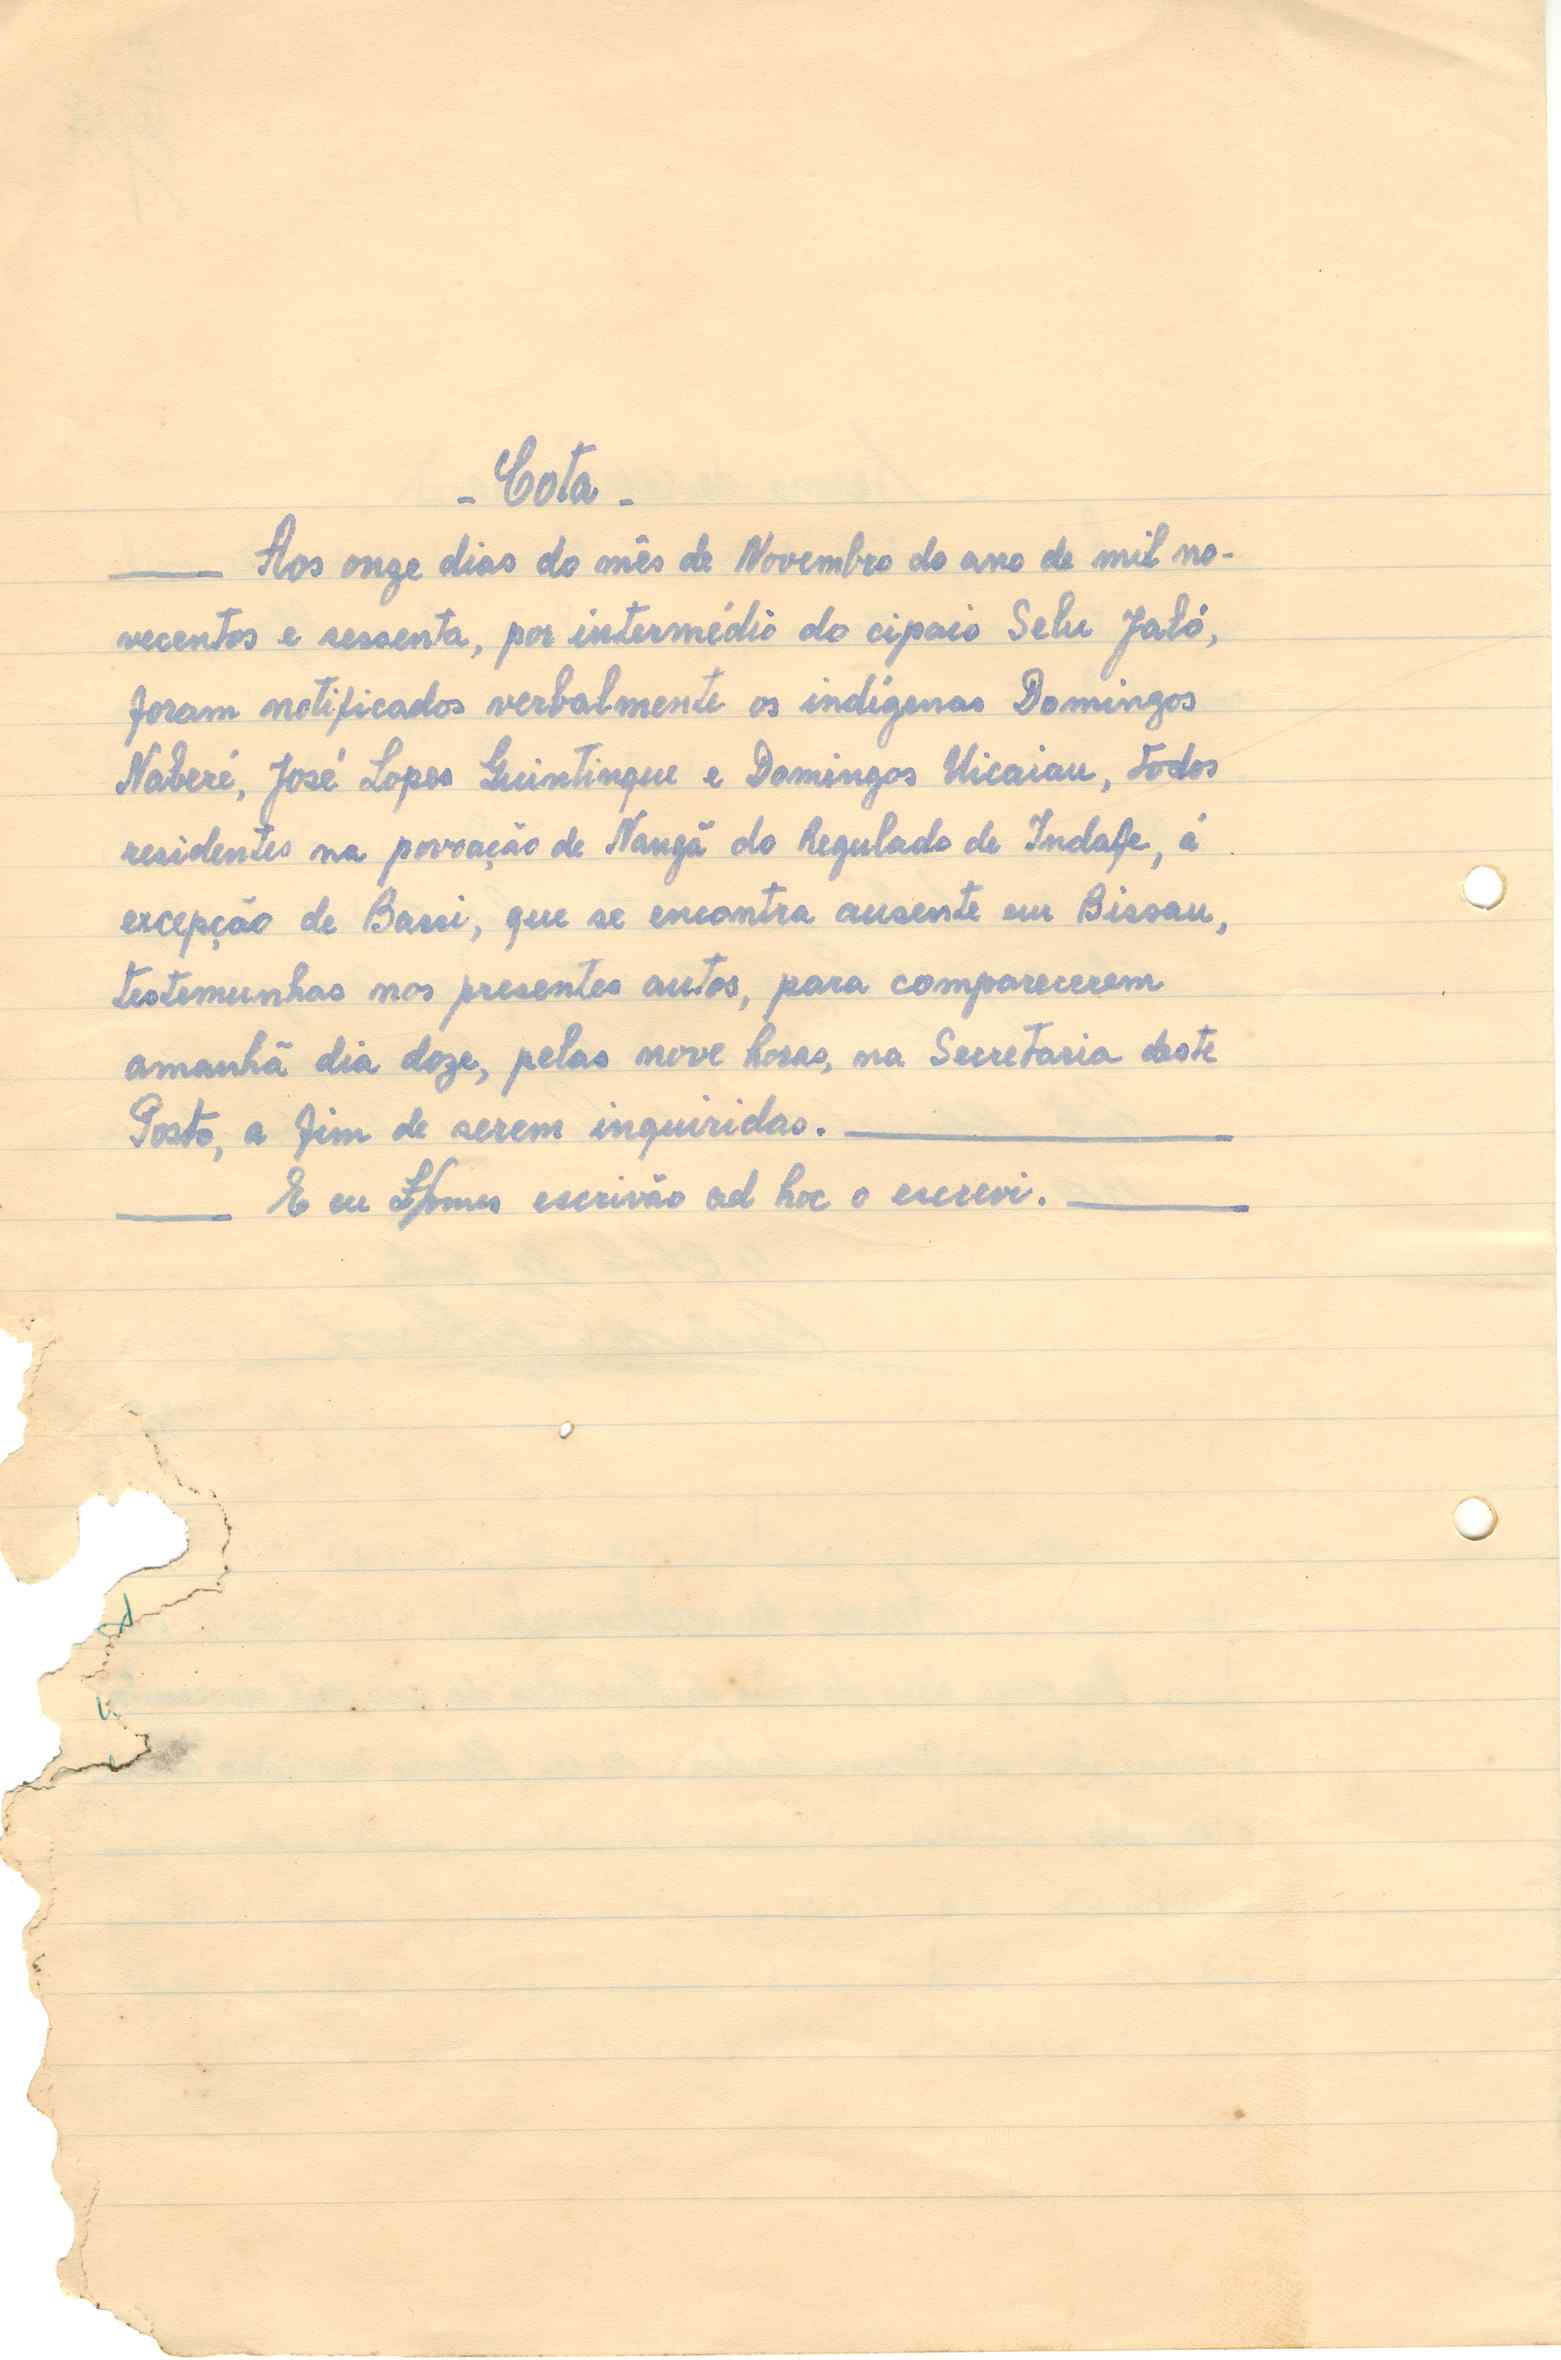 - Cota -
Aos onze dias do mês de Novembro do ano de mil no-
vecentos e sessenta, por intermédio do cipaio Selu Jaló,
foram notificados verbalmente os indígenas Domingos
Naberé, José Lopes Guintingue e Domingos Uicaiau, todos
residentes na povoação de Nangã do Regulado de Indafe, á
excepção de Bassi, que se encontra ausente em Bissau,
testemunhas nos presentes autos, para comparecerem
amanhã dia doze, pelas nove horas, na Secretaria deste
Posto, a fim de serem inquiridas.
E eu escrivão ad hoc o escrevi.